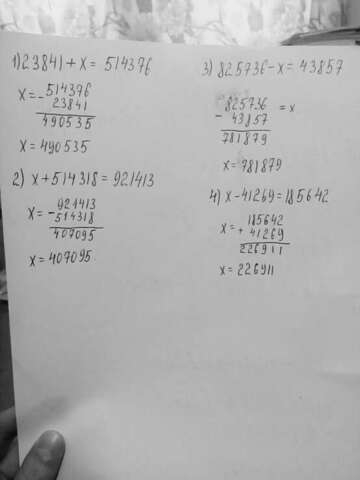 1) 23841 + x = 514376
x = - 514376
23841
490535
x = 490535
2) x + 514318 = 921413
x = - 921413
514318
407095
x = 407095.
3) 825736 - x = 43857
825736 = x
- 43857
781879
x = 781879
4) x - 41269 = 185642
x = 185642
+ 41269
226911
x = 226911